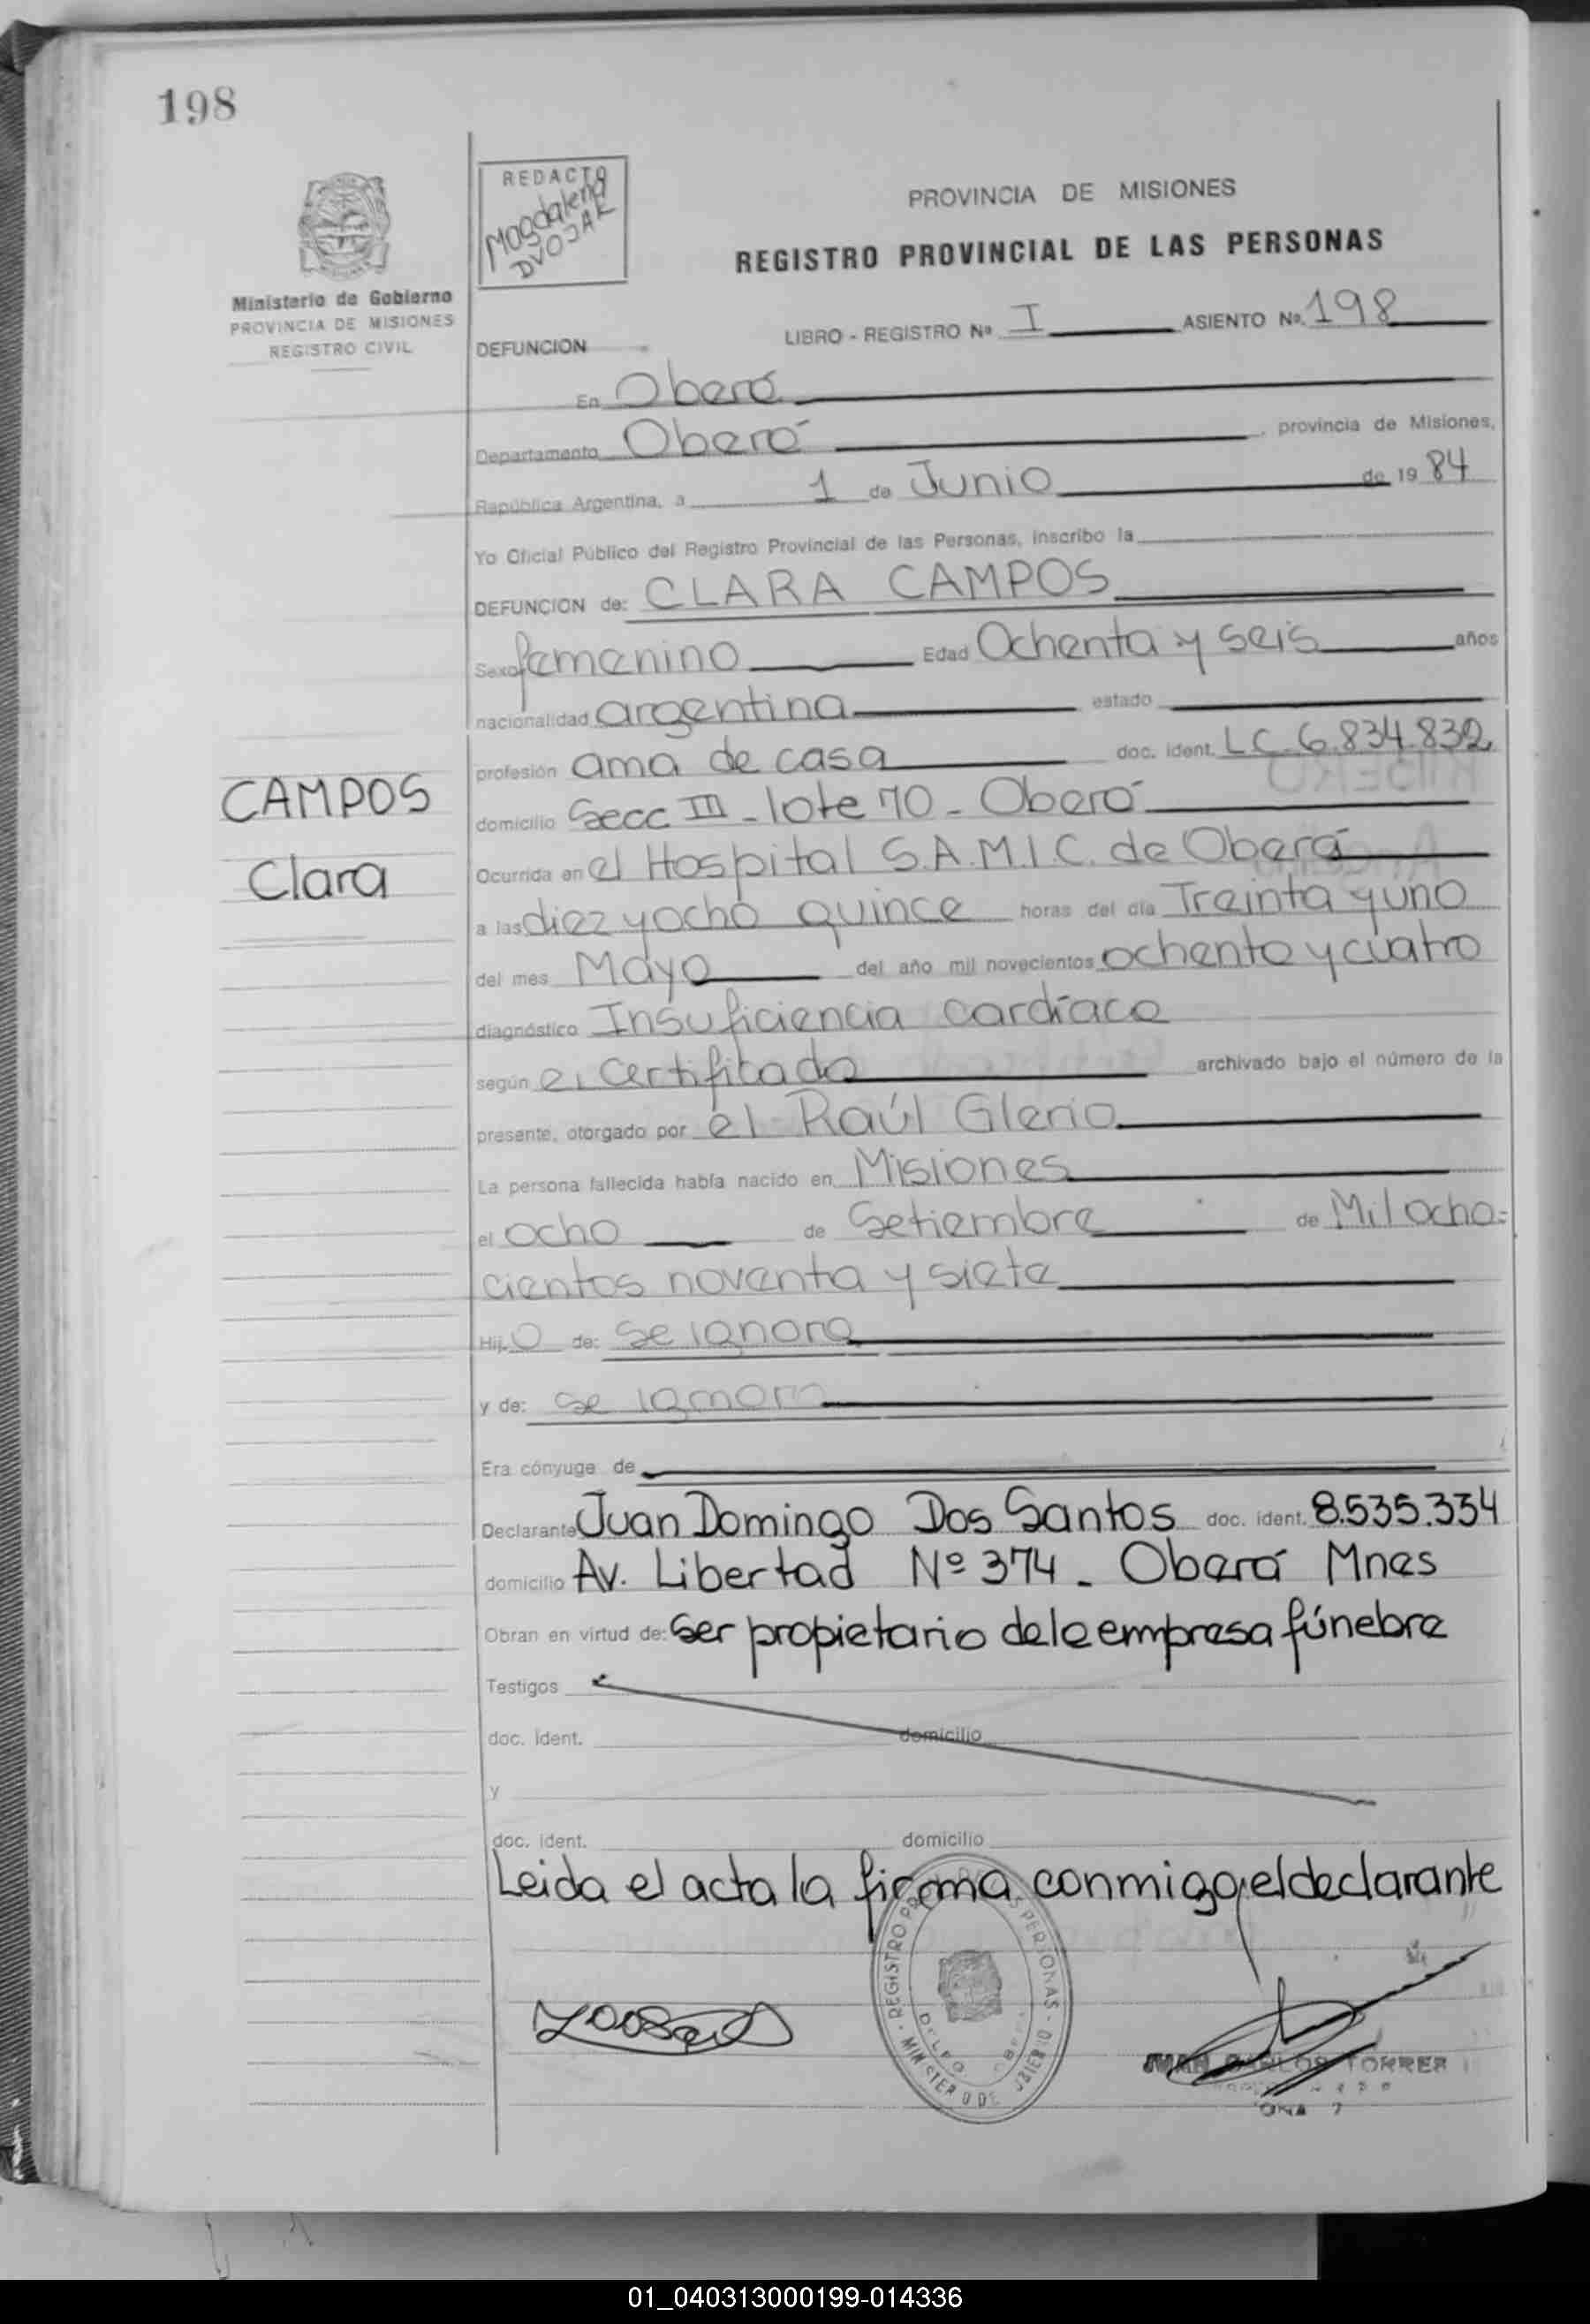 198
REDACTO
Magdalena
DVOJAK
PROVINCIA DE MISIONES
REGISTRO PROVINCIAL DE LAS PERSONAS
Ministerio de Gobierno
PROVINCIA DE MISIONES
REGISTRO CIVIL
DEFUNCION LIBRO - REGISTRO Nº I ASIENTO Nº 198
En Oberá
Departamento Oberá, provincia de Misiones,
República Argentina, a 1 de Junio de 1984
Yo Oficial Público del Registro Provincial de las Personas, inscribo la
DEFUNCION de: CLARA CAMPOS
Sexo femenino Edad Ochenta y seis años
nacionalidad argentina estado
profesión ama de casa doc. ident. LC 6.834.832
CAMPOS
domicilio Secc III - lote 70 - Oberá
Clara
Ocurrida en el Hospital S.A.M.I.C. de Oberá
a las diez y ocho quince horas del día Treinta y uno
del mes Mayo del año mil novecientos ochenta y cuatro
diagnóstico Insuficiencia cardíaca
según el certificado archivado bajo el número de la
presente, otorgado por el Raúl
La persona fallecida había nacido en Misiones
el ocho de Setiembre de Mil ocho=
cientos noventa y siete
Hij de: se ignora
y de: se ignora
Era cónyuge de
Declarante Juan Domingo Dos Santos doc. ident. 8.535.334
domicilio Av. Libertad Nº 374 - Oberá Mnes
Obran en virtud de: ser propietario de la empresa fúnebre
Testigos
doc. ident. domicilio
y
doc. ident. domicilio
Leida el acta la firma conmigo, el declarante
REGISTRO PERSONAS
JUAN CARLOS TORRES
01_040313000199-014336